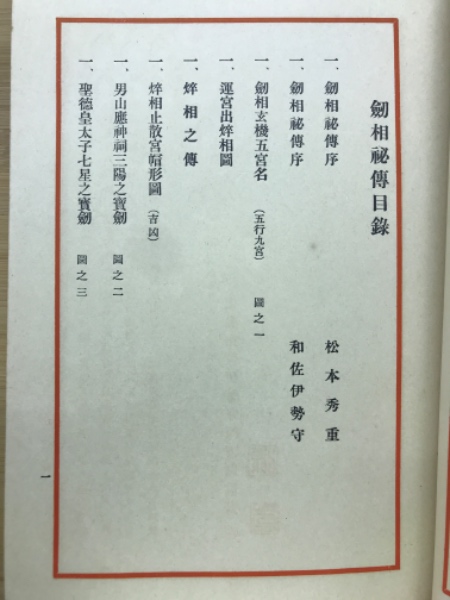 劒相祕傳目錄
一、劒相祕傳序 松本秀重
一、劒相祕傳序 和佐伊勢守
一、劒相玄機五宮名(五行九宮) 圖之一
一、運宮出焠相圖
一、焠相之傳
一、焠相止散宮幅形圖(吉凶)
一、男山應神祠三陽之寶劒 圖之二
一、聖德皇太子七星之寶劒 圖之三
一